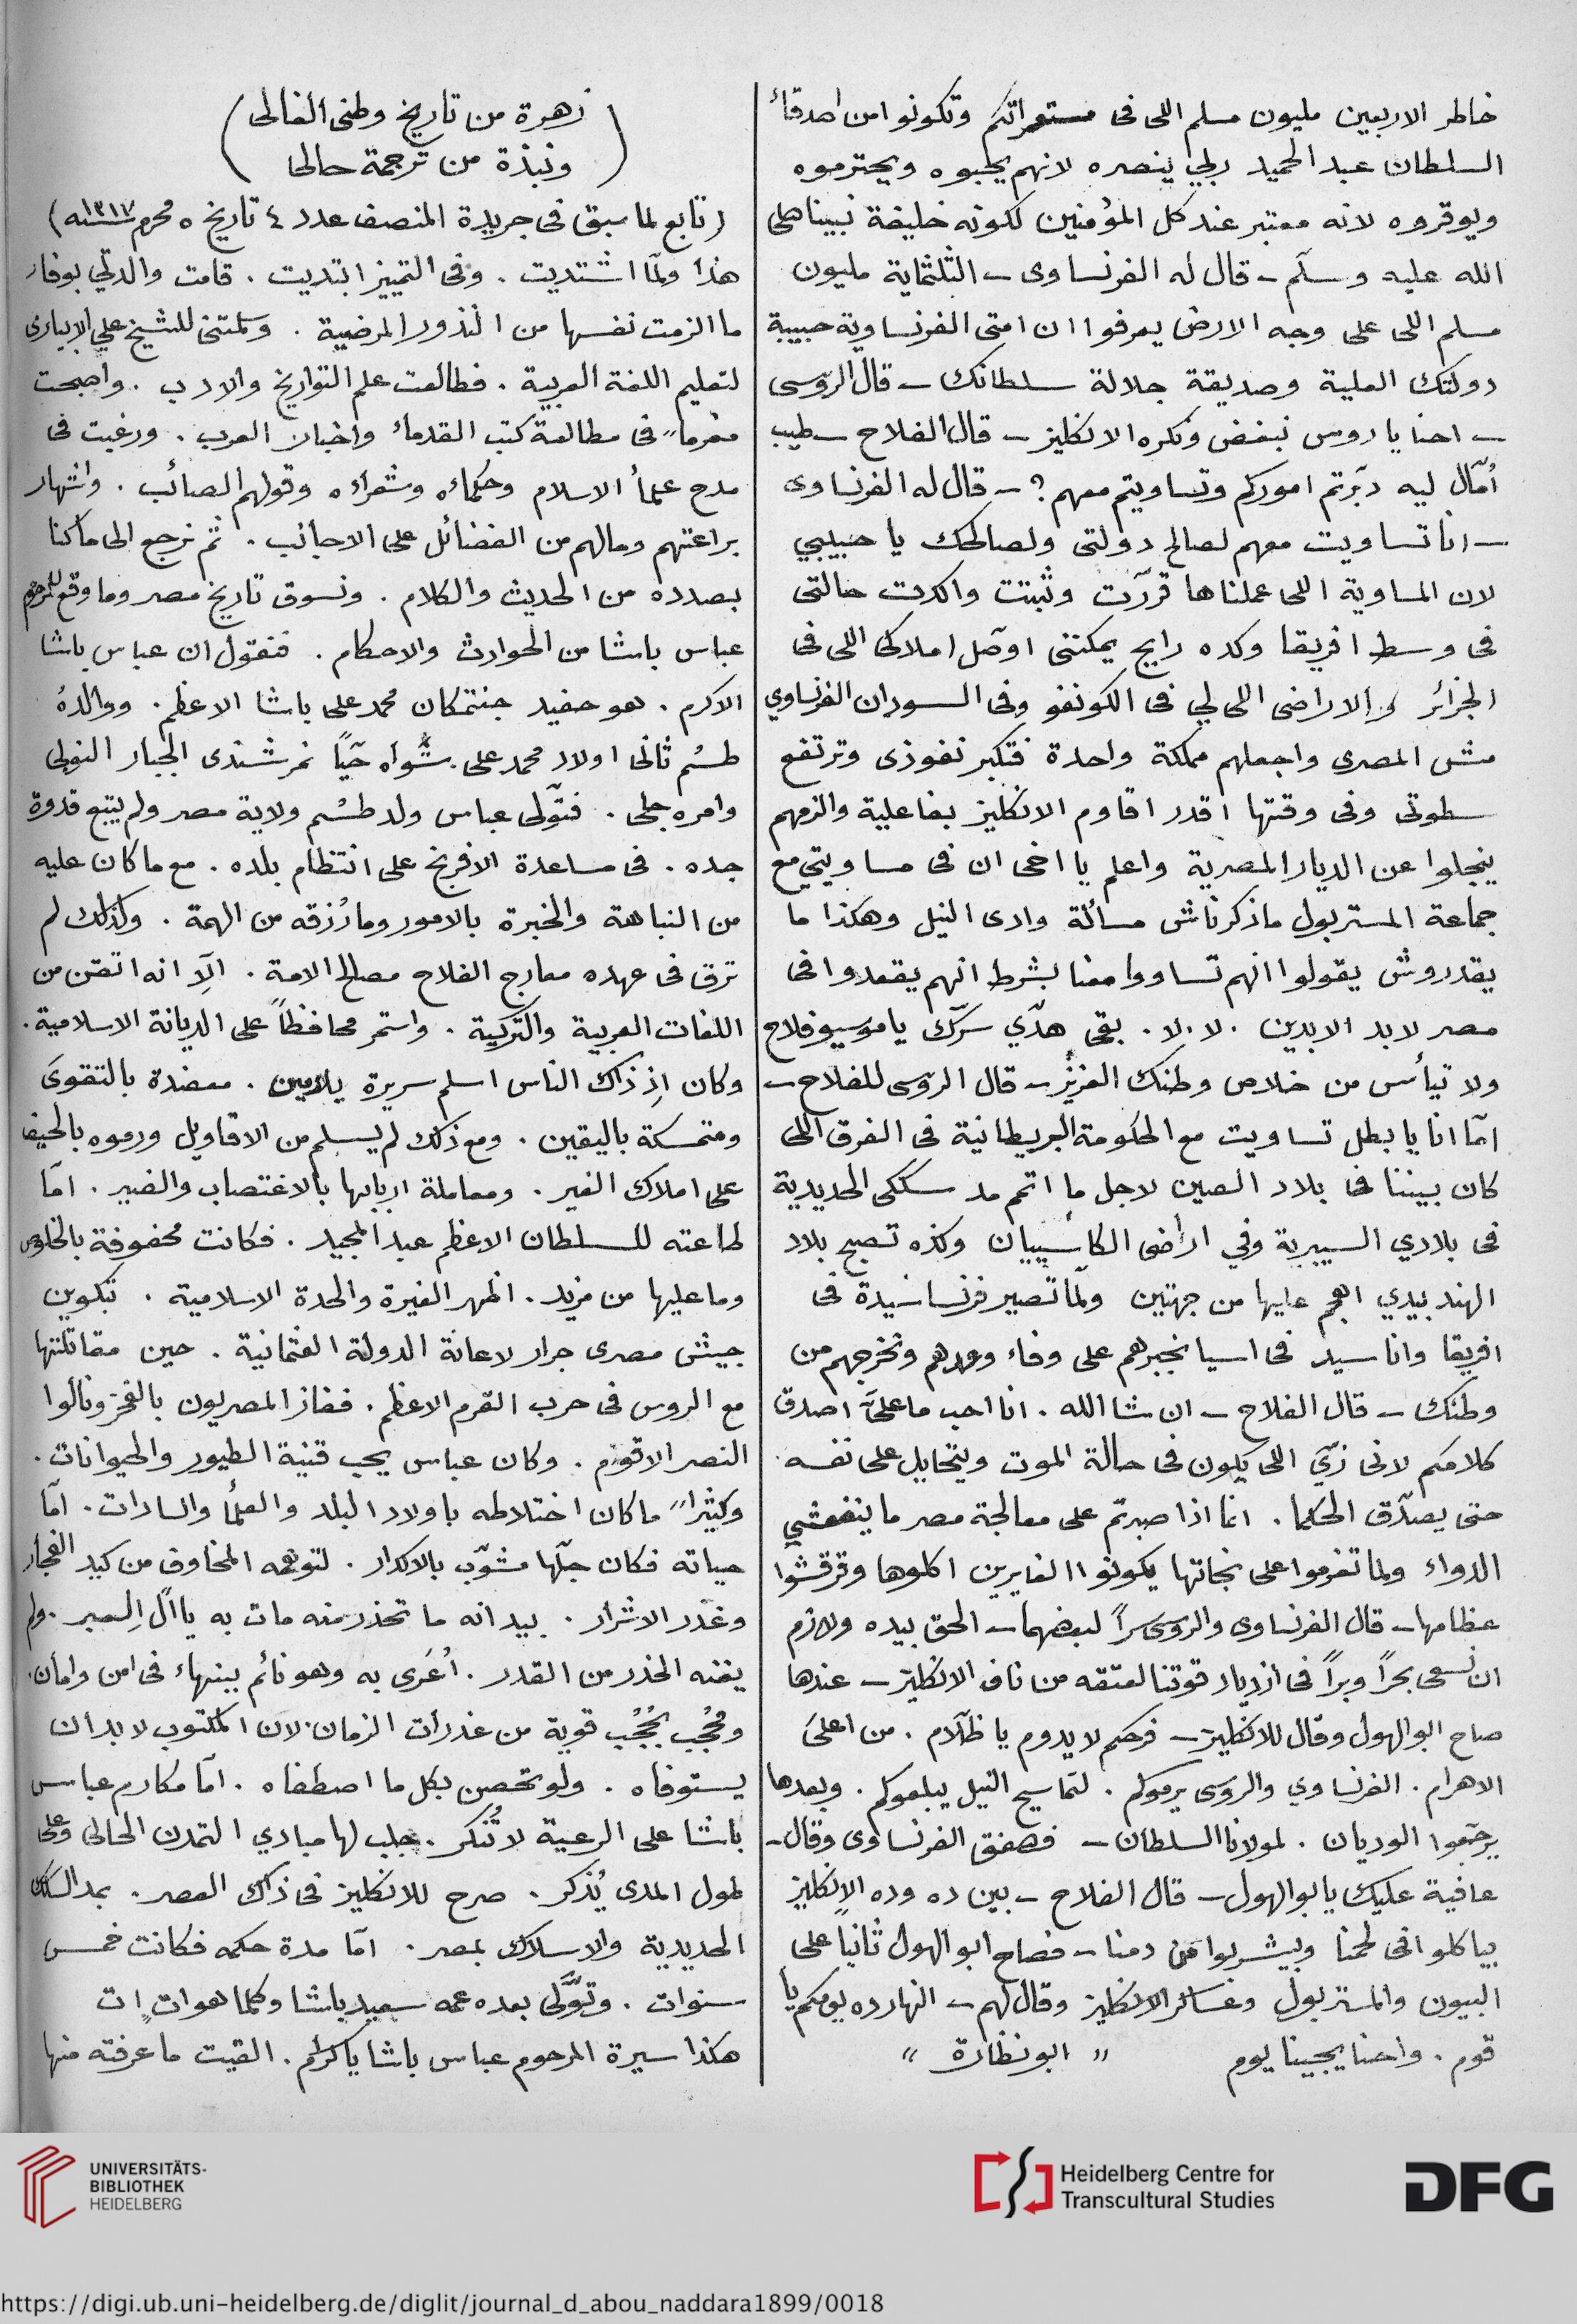 خاطر الاربعين مليون مسلم اللى فى مستعمراتكم وتكونوا من اصدقاء
السلطان عبد الحميد ربي ينصره لانهم يحبوه ويحترموه
ويوقروه لانه معتبر عند كل المؤمنين لكونه خليفة نبينا صلى
الله عليه وسلّم – قال له الفرنساوى – الثلثماية مليون
مسلم اللى على وجه الارض يعرفوا ان امتى الفرنساوية حبيبة
دولتك العلية وصديقة جلالة سلطانك – قال الروسى
– احنا يا روس نبغض ونكره الانكليز – قال الفلاح – طيب
أمّال ليه دبّرتم اموركم وتساويتم معهم ؟ – قال له الفرنساوى
– انا تساويت معهم لصالح دولتى ولصالحك يا حبيبي
لان المساوية اللى عملناها قررّت وثبتت واكدت حالتى
فى وسط افريقا وكده رايح يمكننى اوصّل املاكى اللى فى
الجزائر والاراضى اللى لي فى الكونغو وفى السودان الفرنساوي
مش المصرى واجعلهم مملكة واحدة فتكبر نفوذى وترتفع
سطوتى وفى وقتها اقدر اقاوم الانكليز بفاعلية والزمهم
ينجلوا عن الديار المصرية واعلم يا اخى ان فى مساويتي مع
جماعة المستربول ما ذكرناش مسائلة وادى النيل وهكذا ما
يقدروش يقولوا انهم تساووا معنا بشرط انهم يقعدوا فى
مصر لابد الابدين . لا . لا . بقى هدّي سرّك يا موسيو فلاح
ولا تيأس من خلاص وطنك العزيز – قال الروسى للفلاح –
امّا انا يا بطل تساويت مع الحكومة البريطانية فى الفرق اللى
كان بيننا فى بلاد الصين لاجل ما اتم مد سككى الحديدية
فى بلادي السيبرية وفي اراضى الكاسپيان وكذه تصبح بلاد
الهند بيدي اهجم عليها من جهتين ولمّا تصير فرنسا سيدة فى
افريقا وانا سيد فى اسيا نجبرهم على وفاء وعدهم ونخرجهم من
وطنك – قال الفلاح – ان شا الله . انا احب ما علىّ اصدق
كلامكم لانى زيّ اللى يكون فى حالة الموت ويتحايل على نفسه
حتى يصدّق الحكما . انما اذا صبرتم على معالجة مصر ما ينفعشي
الدواء ولما تعزموا على نجاتها يكونوا الغايرين اكلوها وقرقشوا
عظامها – قال الفرنساوى والروسى سراً لبعضهما – الحق بيده ولازم
ان نسعى بحراً وبراً فى ازدياد قوتنا لعتقه من ناف الانكليز – عندها
صاح ابو الهول وقال للانكليز – فرحكم لا يدوم يا ظلّام . من اعلى
الاهرام . الفرنساوي والروسى يرموكم . لتماسيح النيل يبلعوكم . وبعدها
يرجّعوا الوديان . لمولانا السلطان – فصفق الفرنساوى وقال –
عافية عليك يا بو الهول – قال الفلاح – بين ده وده الانكليز
بيا كلوا فى لحمنا وبيشربوا من دمنا – فصاح ابو الهول ثانياً على
البيون والمستربول وعساكر الانكليز وقال لهم – النهارده يومكم يا
قوم . واحنا يجينا يوم " ابو نظارة "
( زهرة من تاريخ وطنى الغالى
ونبذة من ترجمة حالى )
( تابع لما سبق فى جريدة المنصف عدد ٤ تاريخ ٥ محرم سنة ١٣١٧ )
هذا ولمّا اشتديت . وفى التمييز ابتديت . قامت والدتي بوفاء
ما الزمت نفسها من النذور المرضية . وسلمتنى للشيخ علي الابيارى
لتعليم اللغة العربية . فطالعت علم التواريخ والادب . واصبحت
مغرماً فى مطالعة كتب القدماء واخبار العرب . ورغبت فى
مدح علمأ الاسلام وحكماه وشعراه وقولهم الصائب . واشتهار
براعتهم ومالهم من الفضائل على الاجانب . ثم نرجع الى ما كنا
بصدده من الحديث والكلام . ونسوق تاريخ مصر وما وقع للمرحوم
عباس باشا من الحوادث والاحكام . فنقول ان عباس باشا
الاكرم . هو حفيد جنتمكان محمد على باشا الاعظم . ووالدهُ
طسُم ثانى اولاد محمد على . شواه حيّاً نمر شندى الجبار النوبى
وامره جلى . فتوّلى عباس ولد طسُم ولاية مصر ولم يتبع قدوة
جده . فى مساعدة الافرنج على انتظام بلده . مع ما كان عليه
من النباهة والخبرة بالامور وما رُزقه من الهمة . ولذلك لم
ترق فى عهده معارج الفلاح مصالح الامة . الّا انه اتقن من
اللغات العربية والتركية . واستمر محافظاً على الديانة الاسلامية .
وكان اِذ ذاك الناس اسلم سريرة . معضدة بالتقوى
ومتمسكة باليقين . ومع ذلك لم يسلم من الاقاويل ورموه بالحيف
على املاك الغير . ومعاملة اربابها بالاغتصاب والضير . امّا
طاعته للسلطان الاعظم عبد المجيد . فكانت محفوفة بالخلوص
وما عليها من مزيد . اظهر الغيرة والحدة الاسلامية . بتكوين
جيش مصرى جرار لاعانة الدولة العثمانية . حين مقاتلتها
مع الروس فى حرب القرم الاعظم . ففاز المصريون بالفخر ونالوا
النصر الاقوم . وكان عباس يحب قنية الطيور والحيوانات .
وكثيراً ما كان اختلاطه باولاد البلد والعلمأ والسادات . امّا
حياته فكان جلّها مشوّب بالاكدار . لتوهمه المخاوف من كيد الفجار
وغدر الاشرار . بيد انه ما تحذر منه مات به يا آل السمير . ولم
يغنه الحذر من القدر . أغرى به وهو نائم ببنهاء فى امن وامان .
ومُحجَّب بحُجُب قوية من غدرات الزمان . لان المكتوب لابد ان
يستوفاه . ولو تحصن بكل ما اصطفاه . امّا مكارم عباس
باشا على الرعية لا تُنكر . جلب لها مبادي التمدن الحالى وعلى
طول المدى يُذكر . صرح للانكليز فى ذاك العصر . بمد السكك
الحديدية والاسلاك بمصر . امّا مدة حكمه فكانت خمس
سنوات . وتوّلى بعده عمه سعيد باشا وكلما هو اتٍ ات
هكذا سيرة المرحوم عباس باشا يا كرام . القيت ما عرفته منها
UNIVERSITÄTS-
BIBLIOTHEK
HEIDELBERG
Heidelberg Centre for
Transcultural Studies
DFG
https://digi.ub.uni-heidelberg.de/diglit/journal_d_abou_naddara1899/0018